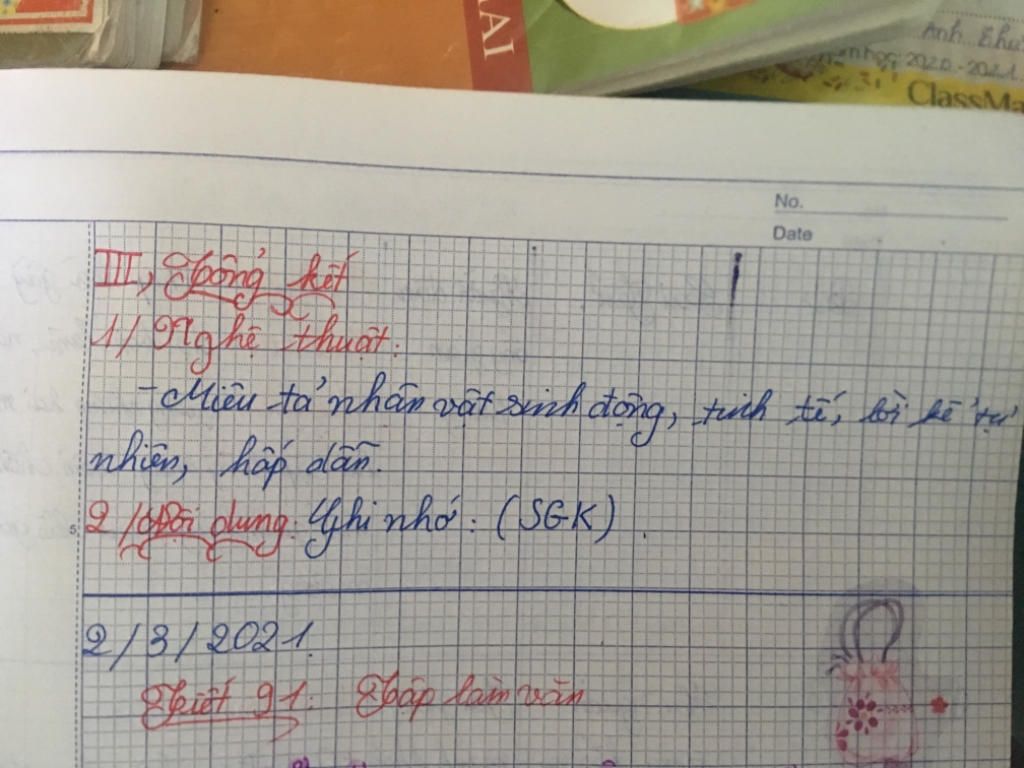 MAI
Anh Thư
năm học: 2020-2021
ClassMa
No.
Date
III, Tổng kết
1/ Nghệ thuật:
- Miêu tả nhân vật sinh động, tinh tế, lời kể tự
nhiên, hấp dẫn.
2/ Nội dung: Ghi nhớ: (SGK).
5
2/3/2021.
Tiết 91: Tập làm văn